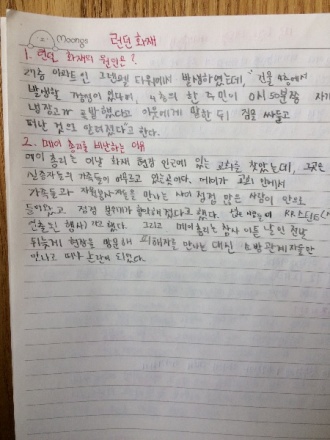 Moongs
런던 화재
1. 런던 화재의 원인은?
24층 아파트인 그렌펠 타워에서 발생하였는데, "건물 4층에서
발생한 것이 있다며, 4층의 한 주민이 0시 50분쯤 자기
냉장고가 폭발했다고 이웃에게 말한 뒤 짐을 싸들고
떠난 것으로 알려졌다"고 한다.
2. 메이 총리를 비난하는 이유
메이 총리는 이날 화재 현장 인근에 있는 교회를 찾았는데, 그곳은
실종자들의 가족들이 머무르고 있는 곳이다. 메이가 교회 안에서
가족들과 자원봉사자들을 만나는 사이 점점 많은 사람이 안으로
들어왔고 점점 분위기가 험악해졌다고 했다.
연출된 행사)라고 했다. 그리고 메이총리는 참사 이튿날인 전날
뒤늦게 현장을 방문해 피해자를 만나는 대신 소방관계자들만
만나고 떠나 논란이 되었다.